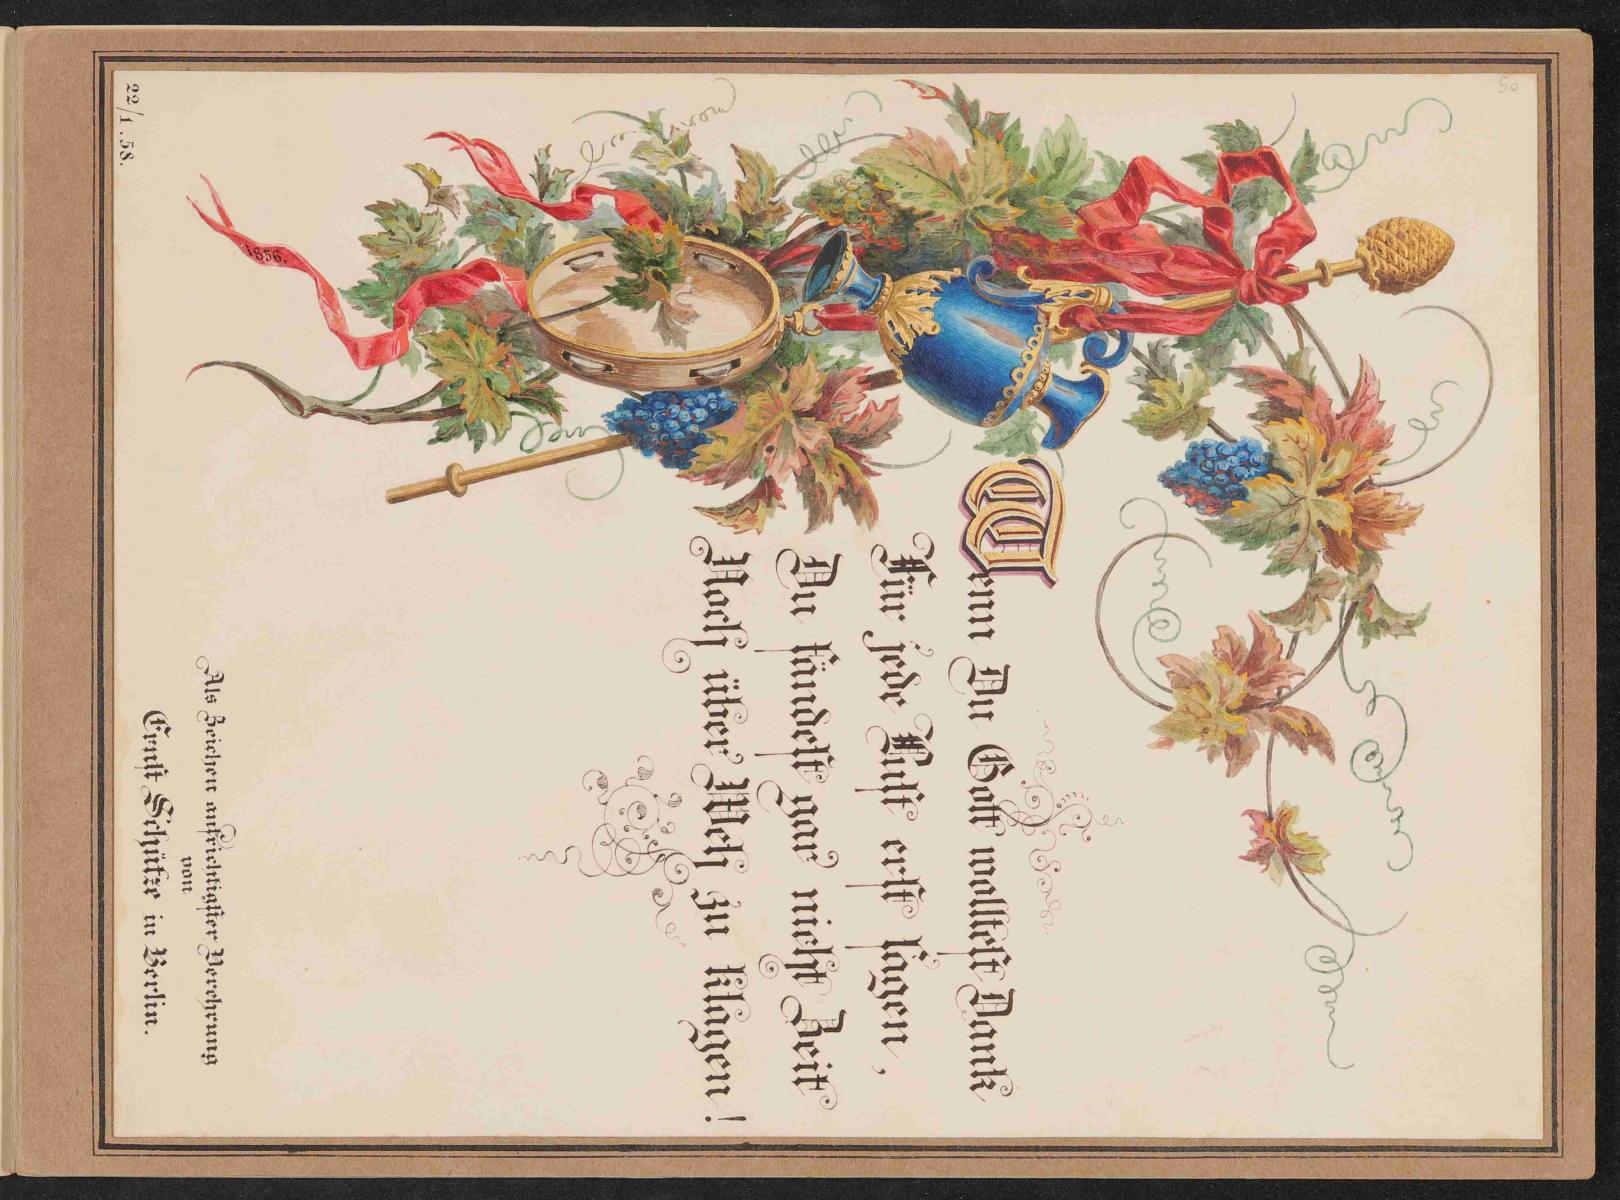 50
Wenn Du Gott wolltest Dank
Für jede Lust erst sagen,
Du fändest gar nicht Zeit
Noch über Weh zu klagen!
1856.
Als Zeichen aufrichtigster Verehrung
von
Ernst Schütze in Berlin.
22/1. 58.